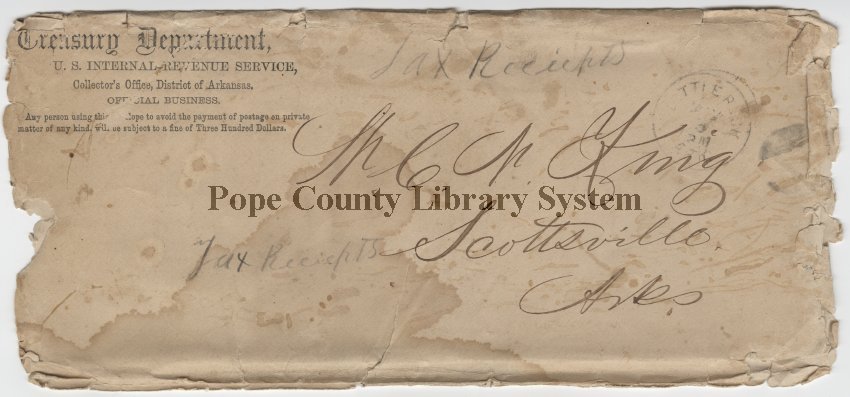 Treasury Department,
U. S. INTERNAL REVENUE SERVICE,
Collector's Office, District of Arkansas.
OFFICIAL BUSINESS.
Any person using this envelope to avoid the payment of postage on private
matter of any kind, will be subject to a fine of Three Hundred Dollars.
Tax Reciepts
W. C. N. King
Pope County Library System
Scottsville.
Tax Reciepts
Arks